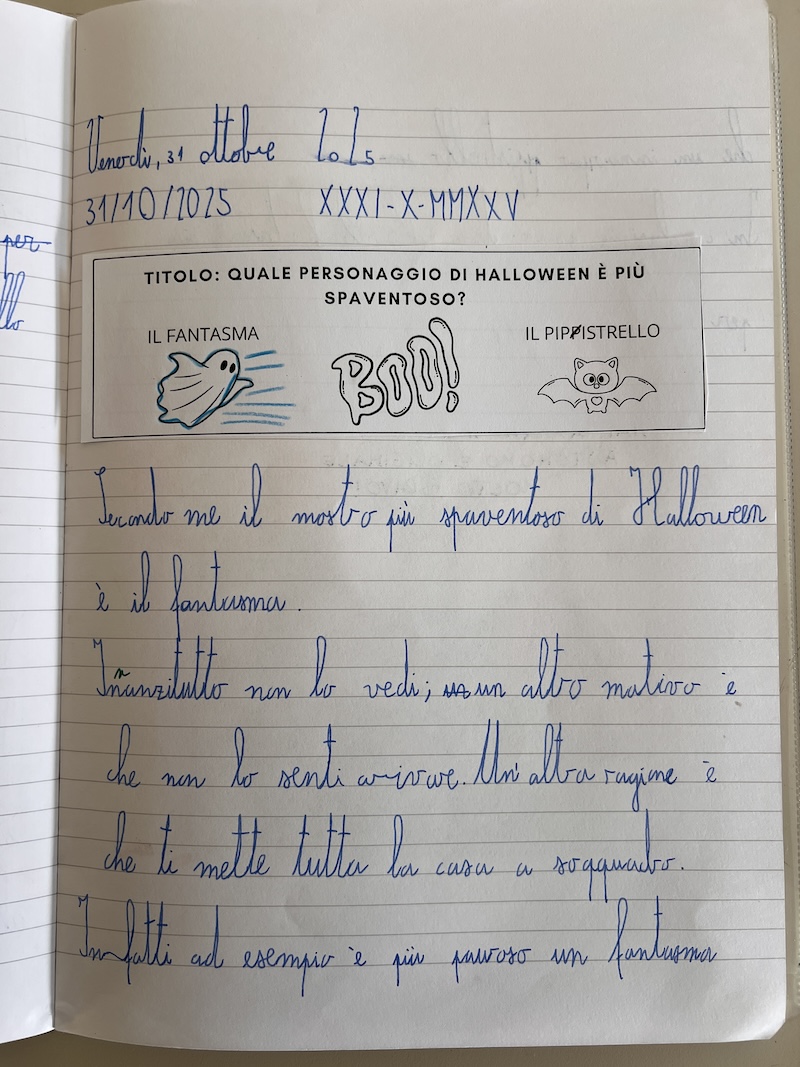 per
llo
Venerdì, 31 ottobre 2025
31/10/2025 XXXI-X-MMXXV
TITOLO: QUALE PERSONAGGIO DI HALLOWEEN È PIÙ
SPAVENTOSO?
IL FANTASMA
BOO!
IL PIPPISTRELLO
Secondo me il mostro più spaventoso di Halloween
è il fantasma.
Innanzitutto non lo vedi; un altro motivo è
che non lo senti arivare. Un'altra ragione è
che ti mette tutta la casa a soqquadro.
Infatti ad esempio è più pauroso un fantasma